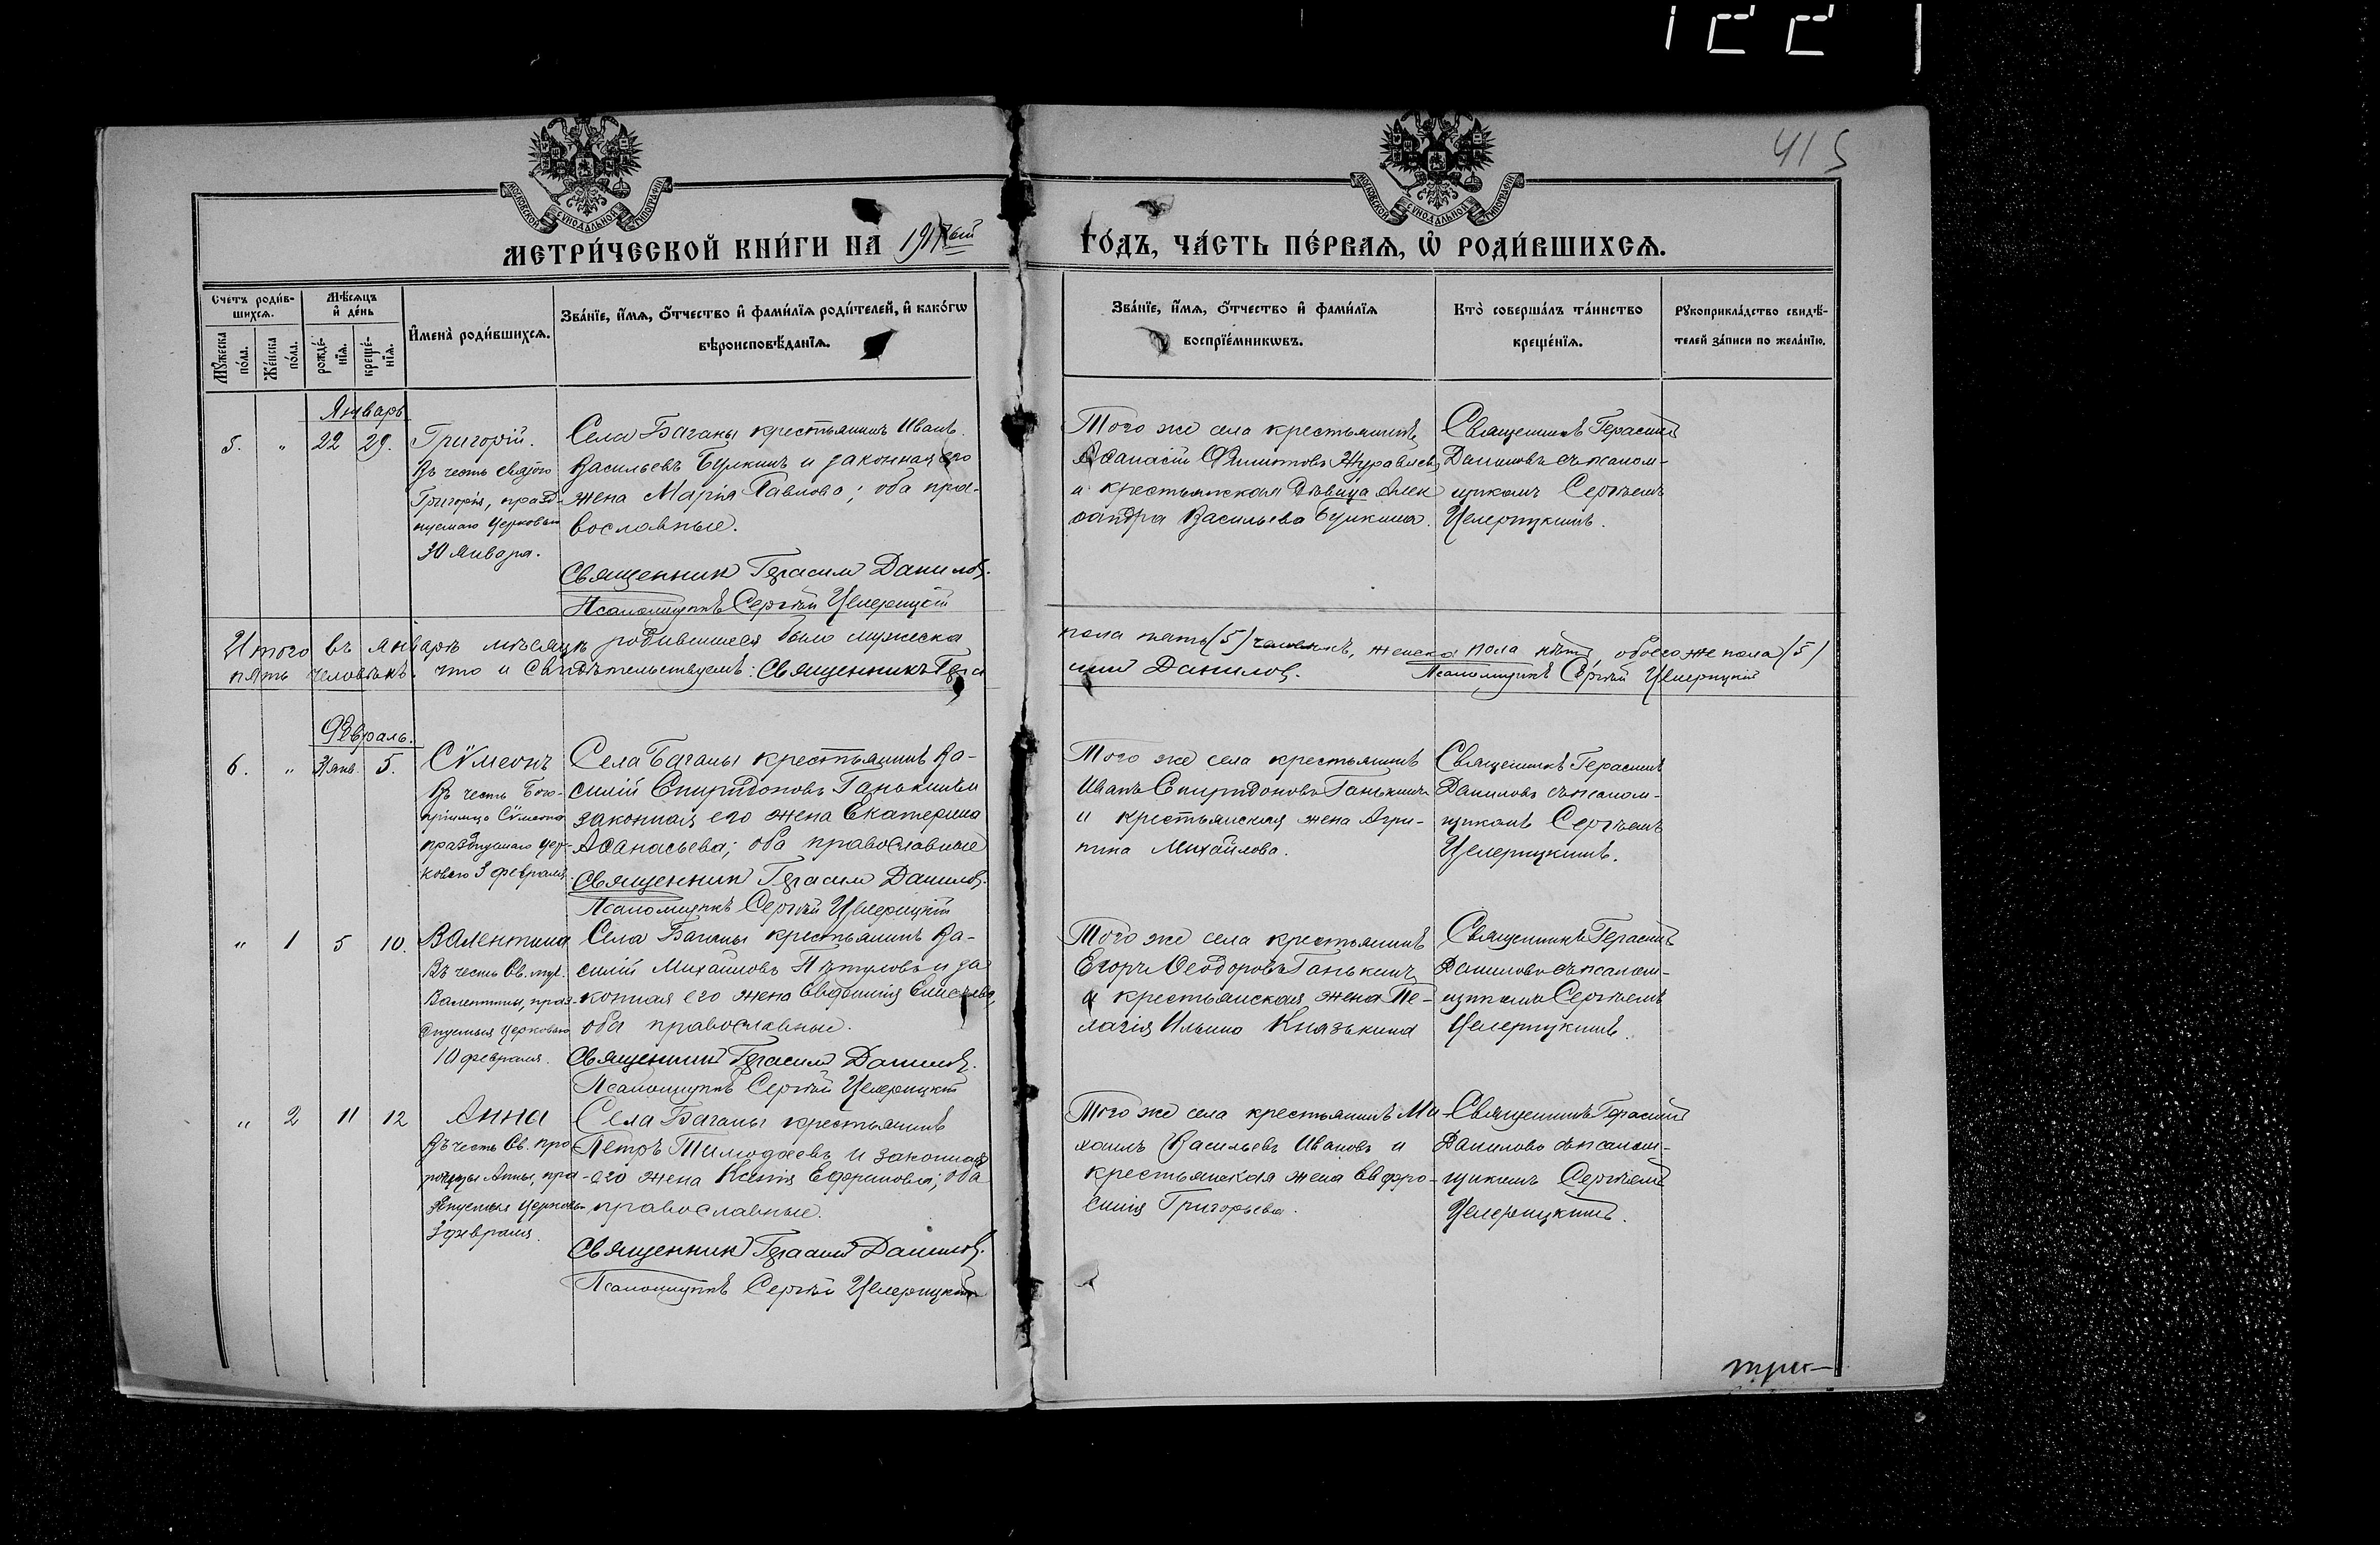 1221
415
МОСКОВСКОЙ СУНОДАЛЬНОЙ ТИПОГРАФІИ
МОСКОВСКОЙ СУНОДАЛЬНОЙ ТИПОГРАФІИ
МЕТРИ́ЧЕСКОЙ КНИ́ГИ НА 1917ый ГО́ДЪ, ЧА́СТЬ ПЕ́РВАѦ, Ѡ҆ РОДИ́ВШИХСѦ.
Сче́тъ роди́в-
шихсѧ.
Мѣ́сѧцъ
и҆ де́нь
И҆мена̀ роди́вшихсѧ.
Зва́нїе, и҆́мѧ, ѻ҆́тчество и҆ фами́лїѧ роди́телей, и҆ како́гѡ
вѣроисповѣ́данїѧ.
Зва́нїе, и҆́мѧ, ѻ҆́тчество и҆ фами́лїѧ
воспрїе́мникѡвъ.
Кто̀ соверша́лъ та́инство
креще́нїѧ.
Рꙋкоприкла́дство свидѣ́-
телей за́писи по жела́нїю.
Мꙋ́жеска
по́ла.
Же́нска
по́ла.
рожде́-
нїѧ.
креще́-
нїѧ.
Январь
5. " 22 29.
Григорій.
Въ честь святого
Григорія, празд-
нуемаго Церковью
30 января.
Села Баганы крестьянинъ Иванъ
Васильевъ Булкинъ и законная его
жена Марія Павлова; оба пра-
вославные.
Священник Герасим Данилов.
Псаломщикъ Сергѣй Цвлерицкій
Того же села крестьянинъ
Аѳанасій Филиповъ Журавлевъ
и крестьянская дѣвица Алек
сандра Васильева Булкина.
Священникъ Герасимъ
Даниловъ съ псалом-
щикомъ Сергѣемъ
Цвлерицкимъ.
Итого въ январѣ мѣсяцѣ родившихся было мужеска пола пять (5) человѣкъ, женска пола нѣтъ, обоего же пола (5)
пять человѣкъ. что и свидѣтельствуемъ: Священникъ Гера сим Данилов. Псаломщикъ Сергѣй Цвлерицкій
Февраль.
6. " 31 янв. 5.
Сѵмеонъ
Въ честь Бого-
пріимца Сѵмеона
празднуемаго Цер-
ковью 3 февраля.
Села Баганы крестьянинъ Ва-
силій Спиридоновъ Ганькинъ и
законная его жена Екатерина
Аѳанасьева; оба православные
Священник Герасим Данилов.
Псаломщикъ Сергѣй Цвлерицкій
Того же села крестьянинъ
Иванъ Спиридоновъ Ганькинъ
и крестьянская жена Агри-
пина Михайлова.
Священникъ Герасимъ
Даниловъ съ псалом-
щикомъ Сергѣемъ
Цвлерицкимъ.
" 1 5 10.
Валентина
Въ честь Св. муч.
Валентины, праз-
днуемыя Церковью
10 февраля.
Села Баганы крестьянинъ Ва-
силій Михайловъ Пѣтуловъ и за
конная его жена Евдокия Елисѣева,
оба православные.
Священник Герасим Данилов.
Псаломщикъ Сергѣй Цвлерицкій
Того же села крестьянинъ
Егоръ Ѳеодоровъ Ганькинъ
и крестьянская жена Пе-
лагія Ильина Князькина
Священникъ Герасимъ
Даниловъ съ псалом-
щикомъ Сергѣемъ
Цвлерицкимъ.
" 2 11 12
Анна
Въ честь Св. про
рочицы Анны, пра
зднуемыя Церковью
3 февраля.
Села Баганы крестьянинъ
Петръ Тимоѳеевъ и законная
его жена Ксенія Ефремова; оба
православные.
Священник Герасим Данилов.
Псаломщикъ Сергѣй Цвлерицкій
Того же села крестьянинъ Ми
хаилъ Васильевъ Ивановъ и
крестьянская жена Евфро-
синія Григорьева.
Священникъ Герасимъ
Даниловъ съ псалом-
щикомъ Сергѣемъ
Цвлерицкимъ.
три-